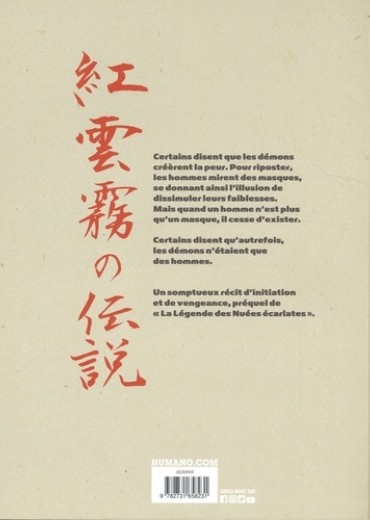 紅雲霧の伝説
Certains disent que les démons
créèrent la peur. Pour riposter,
les hommes mirent des masques,
se donnant ainsi l'illusion de
dissimuler leurs faiblesses.
Mais quand un homme n'est plus
qu'un masque, il cesse d'exister.
Certains disent qu'autrefois,
les démons n'étaient que
des hommes.
Un somptueux récit d'initiation
et de vengeance, préquel de
« La Légende des Nuées écarlates ».
HUMANO.COM
9 782731 658231